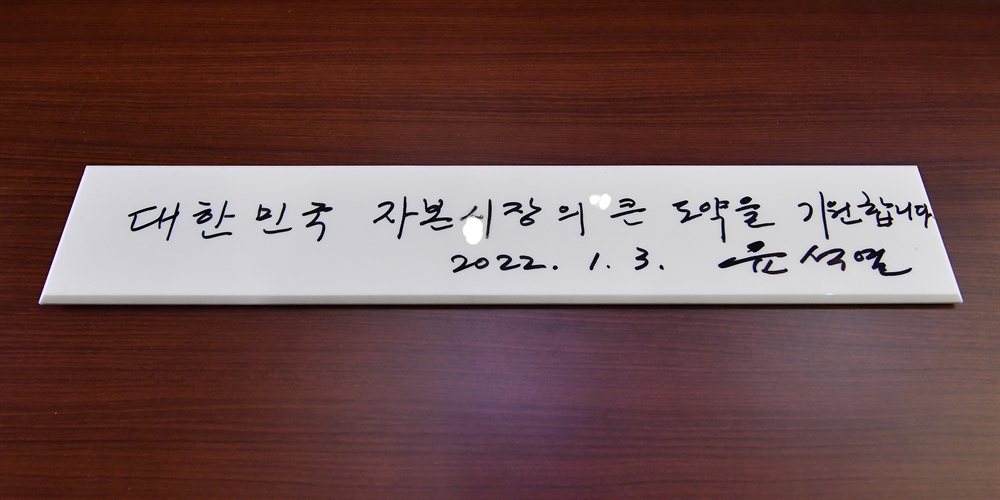 대한민국 자본시장의 큰 도약을 기원합니다
2022. 1. 3. 윤석열